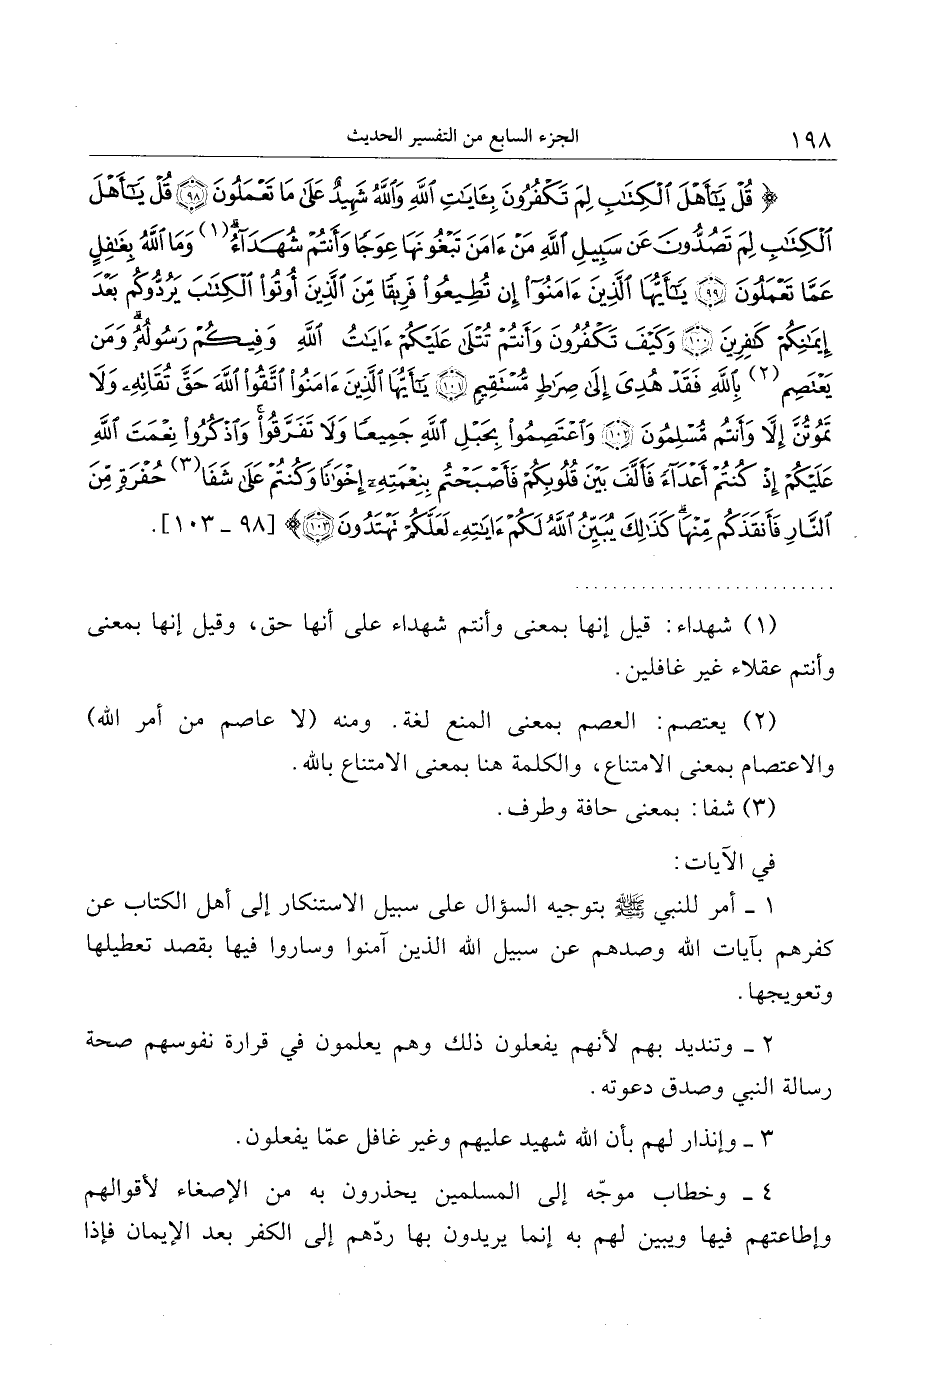 ١٩٨ الجزء السابع من التفسير الحديث
﴿ قُلْ يَٰٓأَهْلَ ٱلْكِتَٰبِ لِمَ تَكْفُرُونَ بِـَٔايَٰتِ ٱللَّهِ وَٱللَّهُ شَهِيدٌ عَلَىٰ مَا تَعْمَلُونَ ٩٨ قُلْ يَٰٓأَهْلَ
ٱلْكِتَٰبِ لِمَ تَصُدُّونَ عَن سَبِيلِ ٱللَّهِ مَنْ ءَامَنَ تَبْغُونَهَا عِوَجًا وَأَنتُمْ شُهَدَآءُ ۗ (١) وَمَا ٱللَّهُ بِغَٰفِلٍ
عَمَّا تَعْمَلُونَ ٩٩ يَٰٓأَيُّهَا ٱلَّذِينَ ءَامَنُوٓا۟ إِن تُطِيعُوا۟ فَرِيقًا مِّنَ ٱلَّذِينَ أُوتُوا۟ ٱلْكِتَٰبَ يَرُدُّوكُم بَعْدَ
إِيمَٰنِكُمْ كَٰفِرِينَ ١٠٠ وَكَيْفَ تَكْفُرُونَ وَأَنتُمْ تُتْلَىٰ عَلَيْكُمْ ءَايَٰتُ ٱللَّهِ وَفِيكُمْ رَسُولُهُۥ ۗ وَمَن
يَعْتَصِم (٢) بِٱللَّهِ فَقَدْ هُدِىَ إِلَىٰ صِرَٰطٍ مُّسْتَقِيمٍ ١٠١ يَٰٓأَيُّهَا ٱلَّذِينَ ءَامَنُوا۟ ٱتَّقُوا۟ ٱللَّهَ حَقَّ تُقَاتِهِۦ وَلَا
تَمُوتُنَّ إِلَّا وَأَنتُم مُّسْلِمُونَ ١٠٢ وَٱعْتَصِمُوا۟ بِحَبْلِ ٱللَّهِ جَمِيعًا وَلَا تَفَرَّقُوا۟ ۚ وَٱذْكُرُوا۟ نِعْمَتَ ٱللَّهِ
عَلَيْكُمْ إِذْ كُنتُمْ أَعْدَآءً فَأَلَّفَ بَيْنَ قُلُوبِكُمْ فَأَصْبَحْتُم بِنِعْمَتِهِۦٓ إِخْوَٰنًا وَكُنتُمْ عَلَىٰ شَفَا (٣) حُفْرَةٍ مِّنَ
ٱلنَّارِ فَأَنقَذَكُم مِّنْهَا ۗ كَذَٰلِكَ يُبَيِّنُ ٱللَّهُ لَكُمْ ءَايَٰتِهِۦ لَعَلَّكُمْ تَهْتَدُونَ ١٠٣ ﴾ [٩٨ ـ ١٠٣].
(١) شهداء: قيل إنها بمعنى وأنتم شهداء على أنها حق، وقيل إنها بمعنى
وأنتم عقلاء غير غافلين.
(٢) يعتصم: العصم بمعنى المنع لغة. ومنه (لا عاصم من أمر الله)
والاعتصام بمعنى الامتناع، والكلمة هنا بمعنى الامتناع بالله.
(٣) شفا: بمعنى حافة وطرف.
في الآيات:
١ ـ أمر للنبي ﷺ بتوجيه السؤال على سبيل الاستنكار إلى أهل الكتاب عن
كفرهم بآيات الله وصدهم عن سبيل الله الذين آمنوا وساروا فيها بقصد تعطيلها
وتعويجها.
٢ ـ وتنديد بهم لأنهم يفعلون ذلك وهم يعلمون في قرارة نفوسهم صحة
رسالة النبي وصدق دعوته.
٣ ـ وإنذار لهم بأن الله شهيد عليهم وغير غافل عمّا يفعلون.
٤ ـ وخطاب موجّه إلى المسلمين يحذرون به من الإصغاء لأقوالهم
وإطاعتهم فيها ويبين لهم به إنما يريدون بها ردّهم إلى الكفر بعد الإيمان فإذا